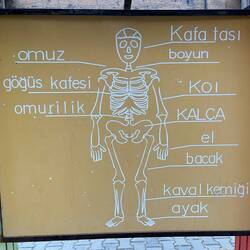 Kafa tası
omuz
boyun
göğüs kafesi
Kol
omurilik
KALÇA
el
bacak
kaval kemiği
ayak